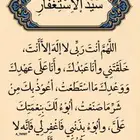 سَيِّدُ الِاسْتِغْفَارِ
اللَّهُمَّ أَنْتَ رَبِّي لَا إِلَهَ إِلَّا أَنْتَ،
خَلَقْتَنِي وَأَنَا عَبْدُكَ، وَأَنَا عَلَى عَهْدِكَ
وَوَعْدِكَ مَا اسْتَطَعْتُ، أَعُوذُ بِكَ مِنْ
شَرِّ مَا صَنَعْتُ، أَبُوءُ لَكَ بِنِعْمَتِكَ
عَلَيَّ، وَأَبُوءُ بِذَنْبِي فَاغْفِرْ لِي فَإِنَّهُ لَا